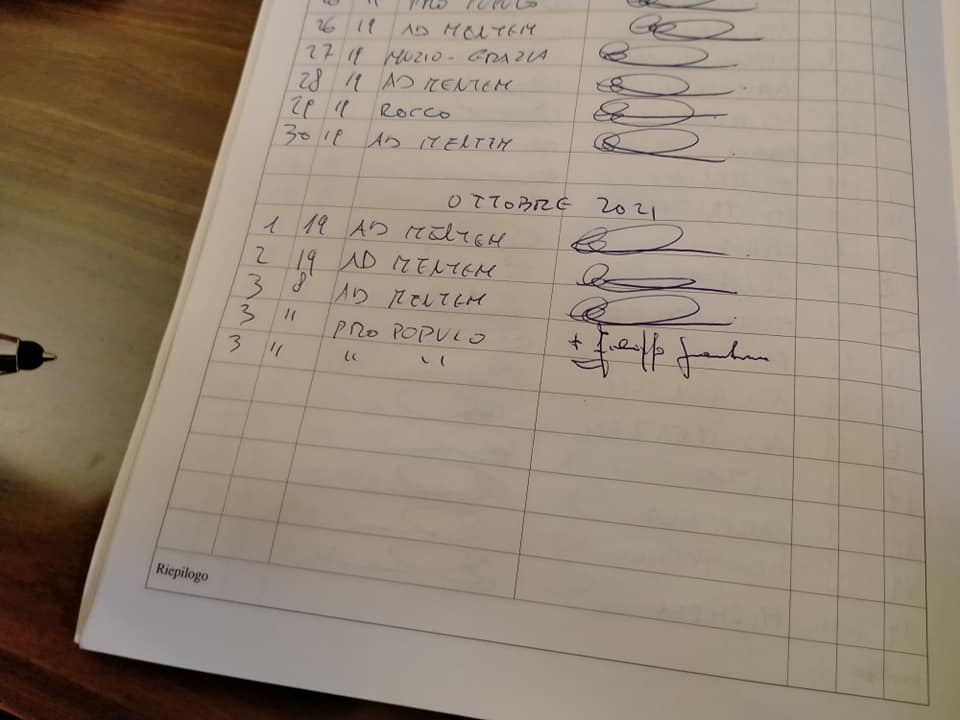 PRO POPULO
26 19 AD MENTEM
27 19 MUZIO - GRAZIA
28 19 AD MENTEM
29 19 ROCCO
30 19 AD MENTEM
OTTOBRE 2021
1 19 AD MENTEM
2 19 AD MENTEM
3 8 AD MENTEM
3 " PRO POPULO
3 " " "
Riepilogo